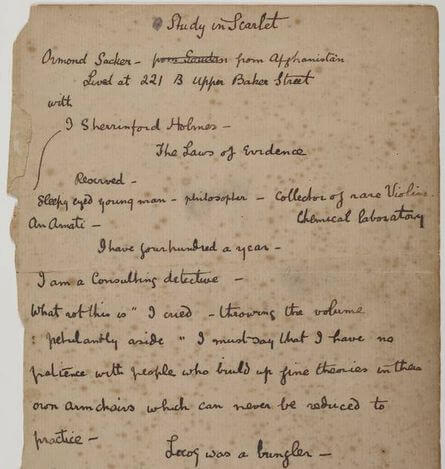 Study in Scarlet
Ormond Sacker - from Soudan from Afghanistan
Lived at 221 B Upper Baker Street
with
I Sherrinford Holmes -
The Laws of Evidence
Reserved -
Sleepy eyed young man - philosopher - Collector of rare Violins
An Amati -
Chemical laboratory
I have four hundred a year -
I am a Consulting detective -
What rot this is" I cried - throwing the volume
: petulantly aside " I must say that I have no
patience with people who build up fine theories in their
own armchairs which can never be reduced to
practice -
Lecoq was a bungler -